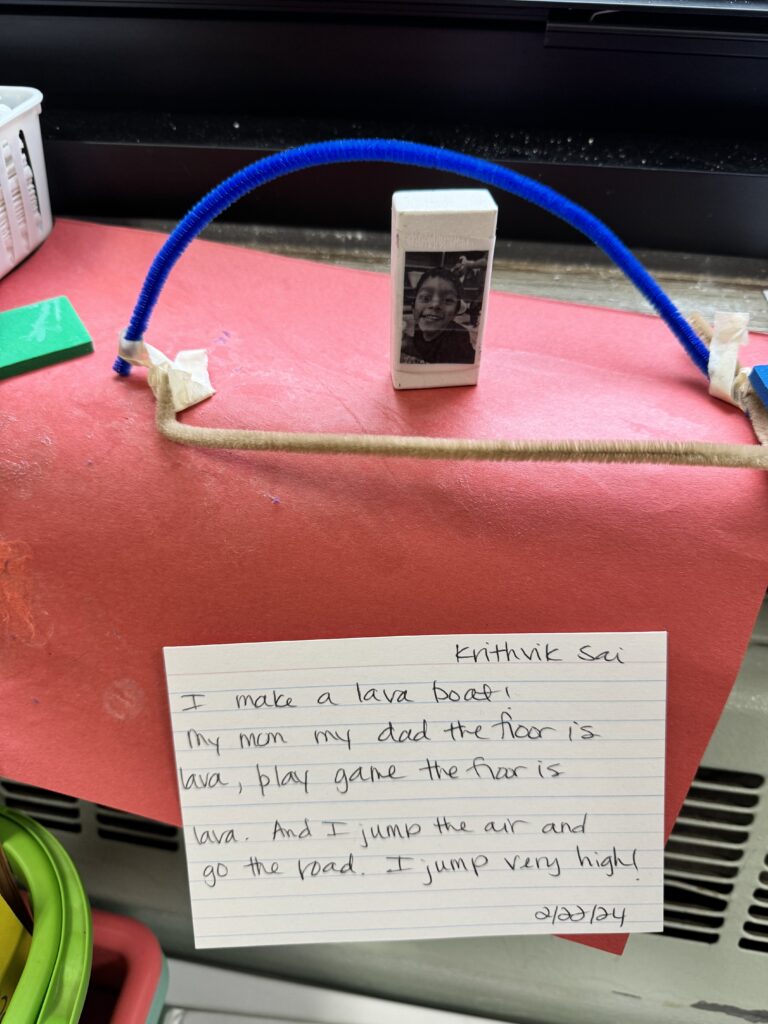 Krithvik Sai
I make a lava boat!
My mom my dad the floor is
lava, play game the floor is
lava. And I jump the air and
go the road. I jump very high!
2/22/24